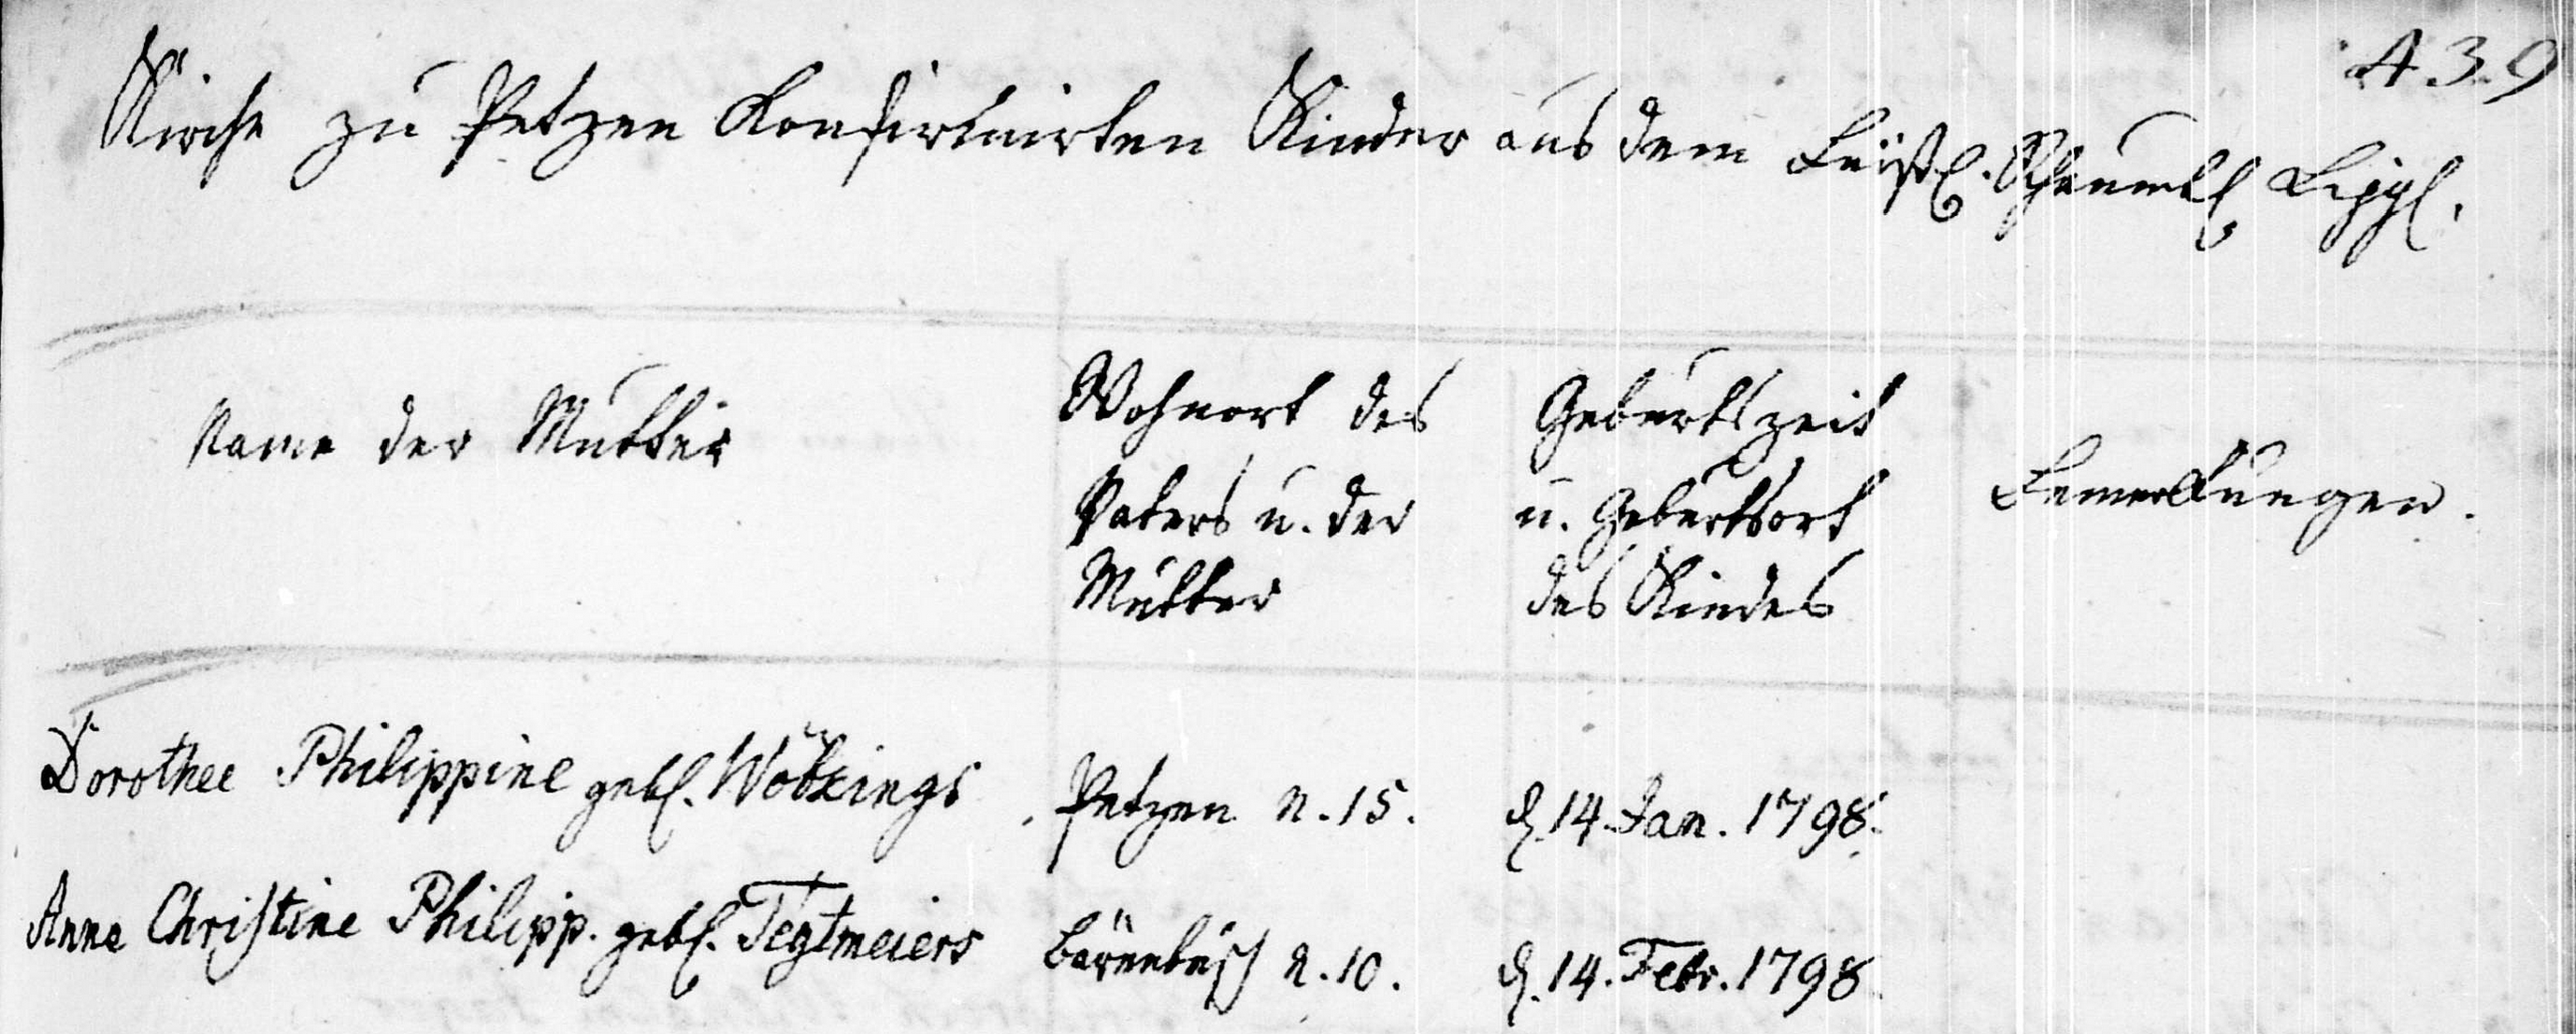 A 39
Kirche zu Petzen Konfirmirten Kinder aus dem Fürstl. Schaumb. Lippl.
Name der Mutter
Wohnort des
Vaters u. der
Mutter
Geburtszeit
u. Geburtsort
des Kindes
Bemerkungen.
Dorothee Philippine geb. Wöbkings Petzen n. 15. d. 14. Jan. 1798.
Anne Christine Philipp. geb. Tegtmeiers Bärenbusch n. 10. d. 14. Febr. 1798.